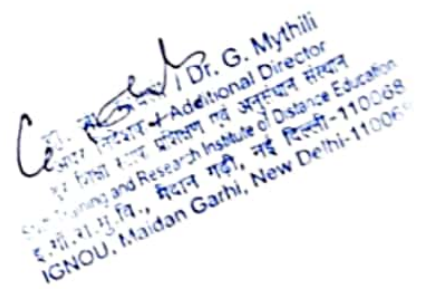 / Dr. G. Mythili
अपर निदेशक / Additional Director
प्रशिक्षण एवं अनुसंधान संस्थान
Training and Research Institute of Distance Education
इ.गां.रा.मु.वि., मैदान गढ़ी, नई दिल्ली-110068
IGNOU, Maidan Garhi, New Delhi-110068